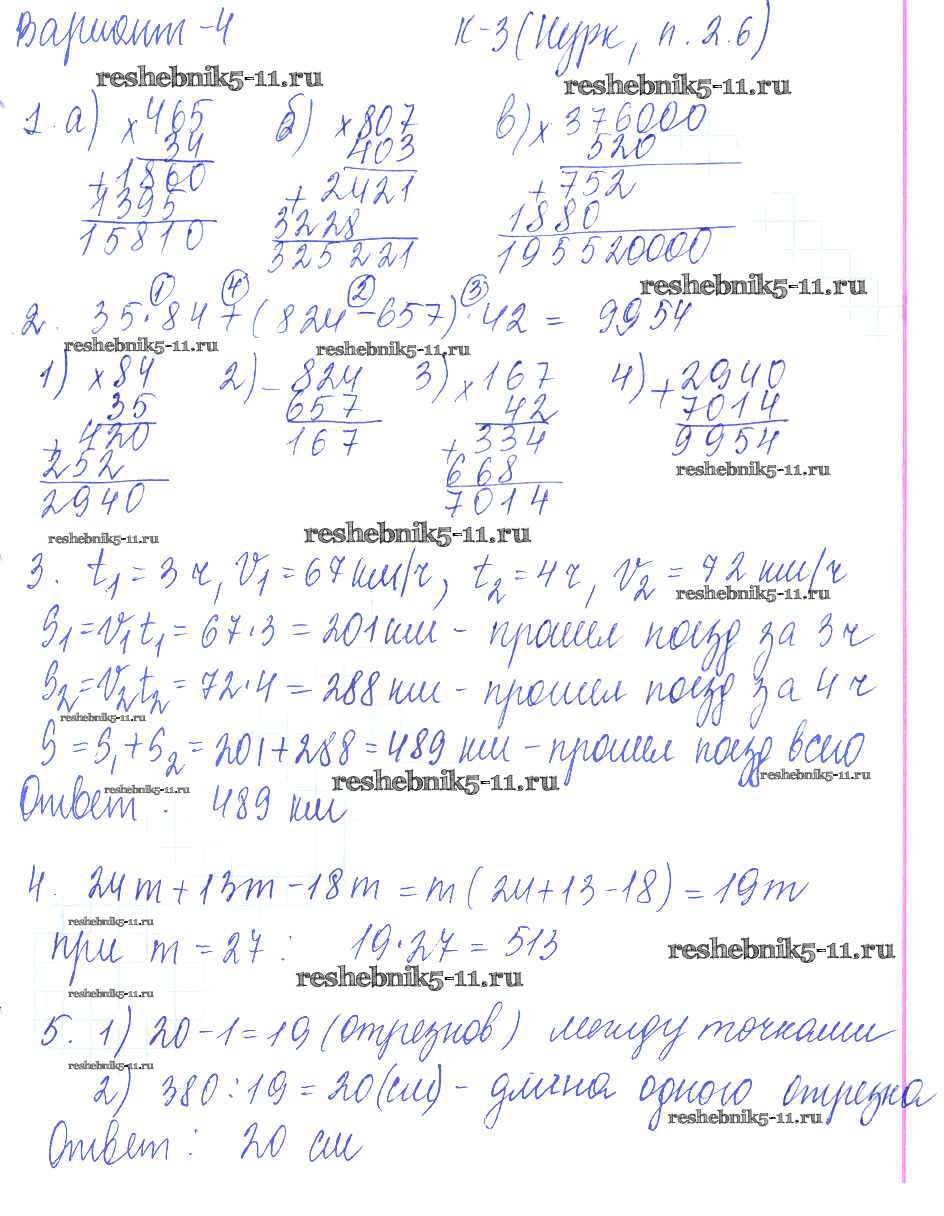 Вариант-4 К-3 (Нурк, п. 2.6)
reshebnik5-11.ru reshebnik5-11.ru
1. а) ×465 б) ×807 в) ×376000
34 403 520
+1860 +2421 +752
1395 3228 1880
15810 325221 195520000
reshebnik5-11.ru
① ④ ② ③
2. 35·84+(824-657)·42 = 9954
reshebnik5-11.ru reshebnik5-11.ru
1) ×84 2) -824 3) ×167 4) +2940
35 657 42 7014
+420 167 +334 9954
252 668 reshebnik5-11.ru
2940 7014
reshebnik5-11.ru reshebnik5-11.ru
3. t₁=3 ч, V₁=67 км/ч, t₂=4 ч, V₂=72 км/ч
reshebnik5-11.ru
S₁=V₁t₁=67·3=201 км - прошел поезд за 3 ч
S₂=V₂t₂=72·4=288 км - прошел поезд за 4 ч
reshebnik5-11.ru
S=S₁+S₂=201+288=489 км - прошел поезд всего
reshebnik5-11.ru reshebnik5-11.ru reshebnik5-11.ru
Ответ: 489 км
4. 24m+13m-18m=m(24+13-18)=19m
reshebnik5-11.ru
при m=27: 19·27=513 reshebnik5-11.ru
reshebnik5-11.ru
reshebnik5-11.ru
5. 1) 20-1=19 (отрезков) между точками
reshebnik5-11.ru
2) 380:19=20(см) - длина одного отрезка
reshebnik5-11.ru
Ответ: 20 см